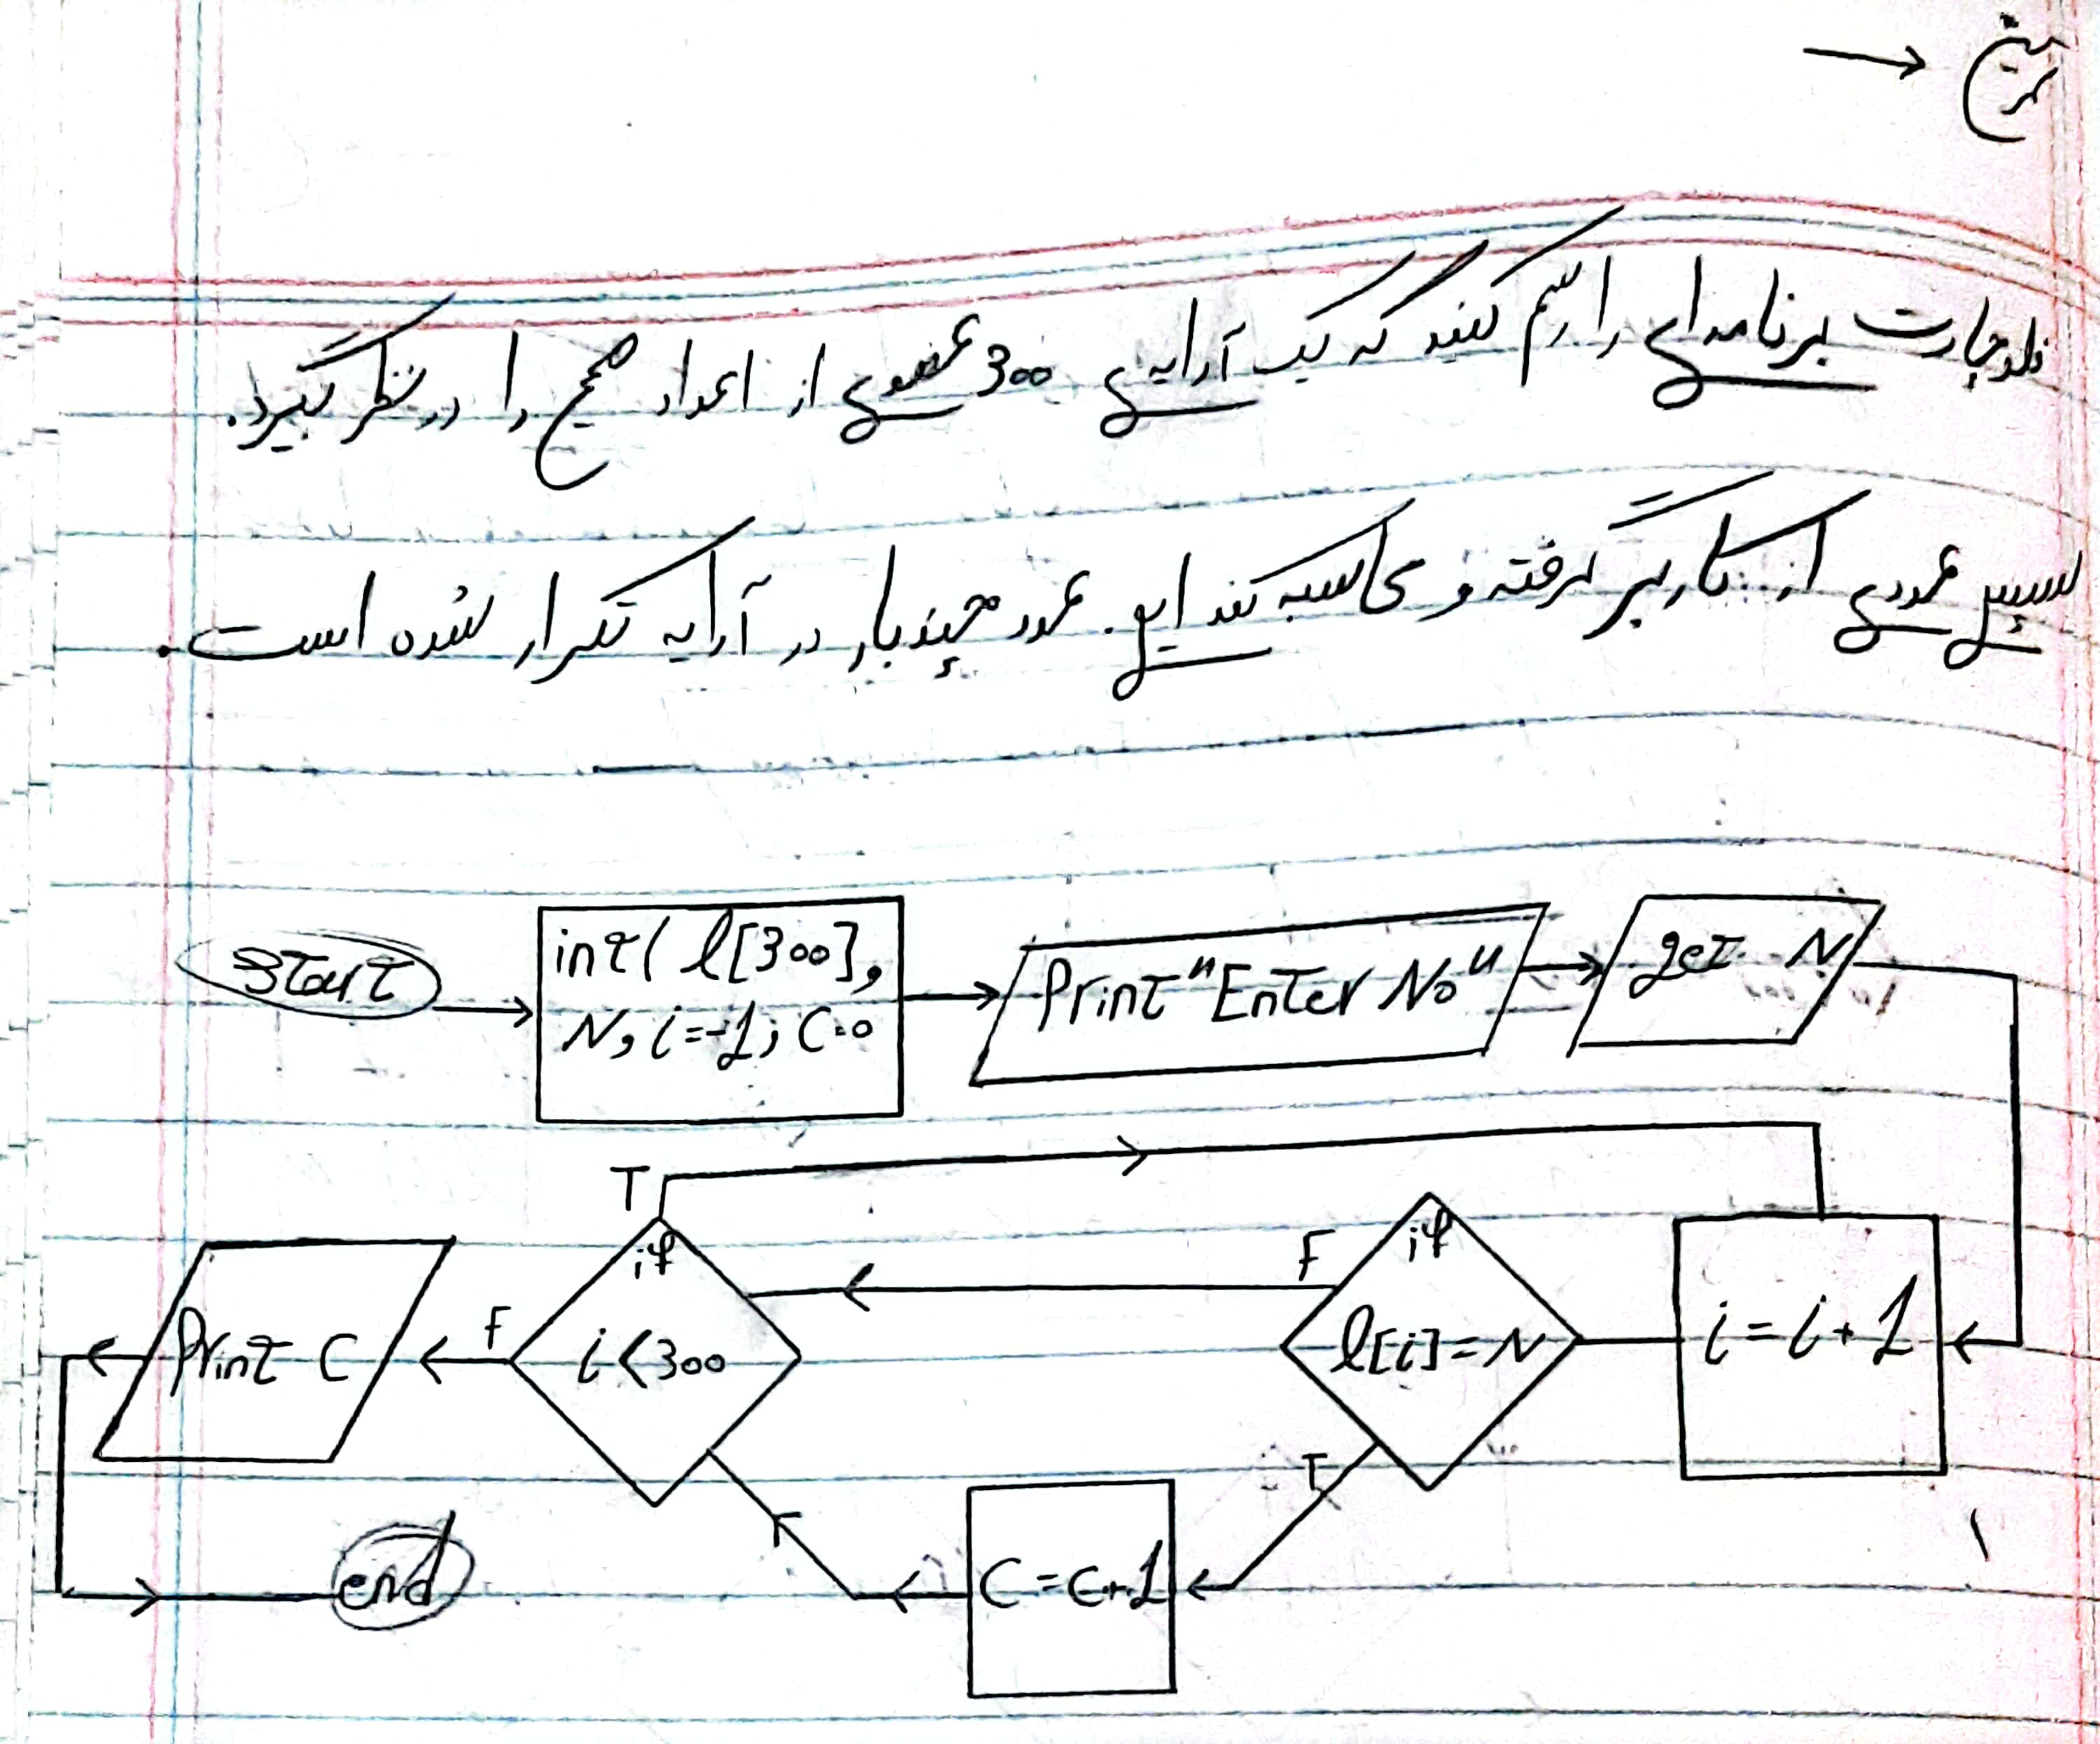 تمرین →
فلوچارت برنامه‌ای را رسم کنید که یک آرایه‌ی 300 عضوی از اعداد صحیح را در نظر بگیرد.
سپس عددی از کاربر گرفته و محاسبه کند این عدد چند بار در آرایه تکرار شده است.
start
int( l[300],
N, i=-1, C=0
Print "Enter No"
get N
i = i + 1
if
l[i] = N
F
T
C = C+1
if
i < 300
T
F
Print C
end